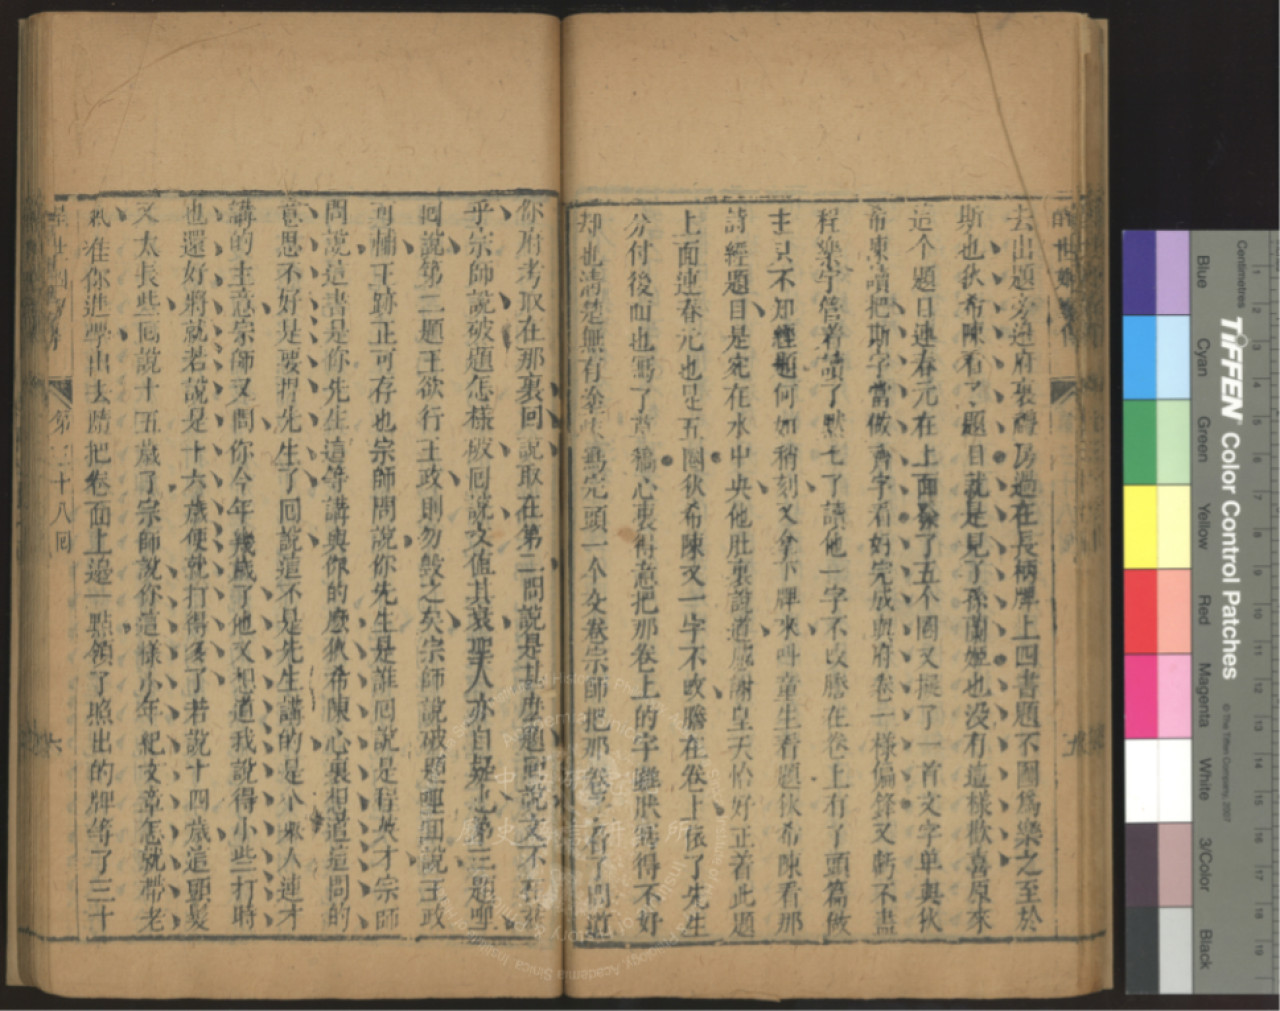 去出題旁邊府裏禮房過在長柄牌上四書題不圖為樂之至於
斯也狄希陳看了題目就是見了孫蘭姬也没有這樣歡喜原來
這个題目連春元在上面聚了五个圈又撰了一首文字单與狄
希陳讀把斯字當做齊字看好完成與府卷一樣偏鋒又虧不盡
程樂宇管着讀了熟七了讀他一字不改謄在卷上有了頭篇做
主只不知經題何如稍刻又拿下牌來呌童生看題狄希陳看那
詩經題目是宛在水中央他肚裏說道感謝皇天恰好正着此題
上面連春元也是五圈狄希陳又一字不改謄在卷上依了先生
分付後面也寫了草稿心裏得意把那卷上的字雖然寫得不好
却也清楚無有塗抹寫完頭一个交卷宗師把那卷子看了問道
你府考取在那裏回說取在第二問說是甚麽題回說文不在茲
乎宗師說破題怎樣破回說文值其衰聖人亦自疑也第三題哩
回說第二題王欲行王政則勿毁之矣宗師說破題哩回說王政
可輔王跡正可存也宗師問說你先生是誰回說是程英才宗師
問說這書是你先生這等講與你的麽狄希陳心裏想道這問的
意思不好是要拏先生了回說這不是先生講的是个舉人連才
講的主意宗師又問你今年幾歲了他又想道我說得小些打時
也還好將就若說是十六歲便就打得多了若說十四歲這頭髮
又太長些回說十五歲了宗師說你這樣小年紀文章怎就帶老
氣准你進學出去隨把卷面上邊一點領了照出的牌等了三十
第三十八回